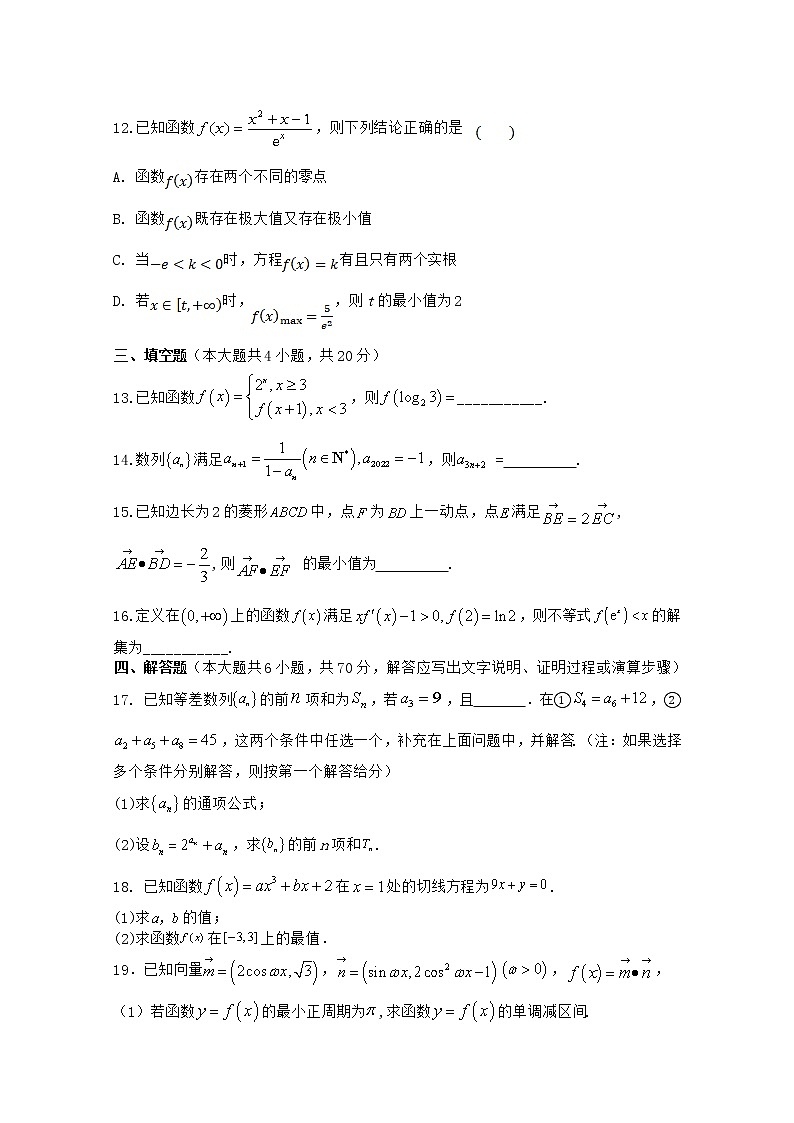 12.已知函数 f(x) = (x² + x − 1)/eˣ，则下列结论正确的是（　　）
A. 函数f(x)存在两个不同的零点
B. 函数f(x)既存在极大值又存在极小值
C. 当−e < k < 0时，方程f(x) = k有且只有两个实根
D. 若x ∈ [t,+∞)时，f(x)max = 5/e²，则 t 的最小值为 2
三、填空题（本大题共 4 小题，共 20 分）
13.已知函数 f(x) = {2ˣ, x ≥ 3; f(x+1), x < 3，则 f(log₂3) = ___________.
14.数列{aₙ}满足aₙ₊₁ = 1/(1−aₙ) (n ∈ N*), a₂₀₂₂ = −1，则a₃ₙ₊₂ =__________.
15.已知边长为 2 的菱形 ABCD 中，点 F 为 BD 上一动点，点 E 满足 →BE = 2→EC，
→AE•→BD = −2/3，则 →AF•→EF 的最小值为__________.
16.定义在(0,+∞)上的函数 f(x)满足 xf′(x)−1 > 0, f(2) = ln2，则不等式 f(eˣ) < x 的解
集为___________.
四、解答题（本大题共 6 小题，共 70 分，解答应写出文字说明、证明过程或演算步骤）
17. 已知等差数列{aₙ}的前 n 项和为 Sₙ，若 a₃ = 9，且_______.在① S₄ = a₆ +12，②
a₂ + a₅ + a₈ = 45，这两个条件中任选一个，补充在上面问题中，并解答.（注：如果选择
多个条件分别解答，则按第一个解答给分）
(1)求{aₙ}的通项公式；
(2)设 bₙ = 2^(aₙ) + aₙ，求{bₙ}的前 n 项和Tₙ.
18. 已知函数 f(x) = ax³ + bx + 2 在 x = 1 处的切线方程为 9x + y = 0.
(1)求 a，b 的值；
(2)求函数 f(x) 在[−3,3]上的最值.
19．已知向量→m = (2cos ωx, √3)，→n = (sin ωx, 2cos² ωx −1) (ω > 0)，f(x) = →m•→n，
（1）若函数 y = f(x) 的最小正周期为 π，求函数 y = f(x) 的单调减区间.